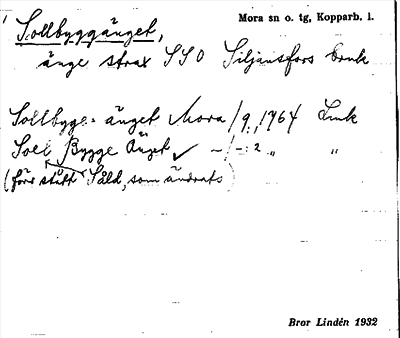 Mora sn o. tg, Kopparb. l.
Sollbyggänget,
änge strax SSO Siljansfors bruk
Sollbygge-änget Mora/9, 1764 Link
Soll Bygge Änget ✓ —/—: 2 „ „
(förr stått Såld, som ändrats)
Bror Lindén 1932